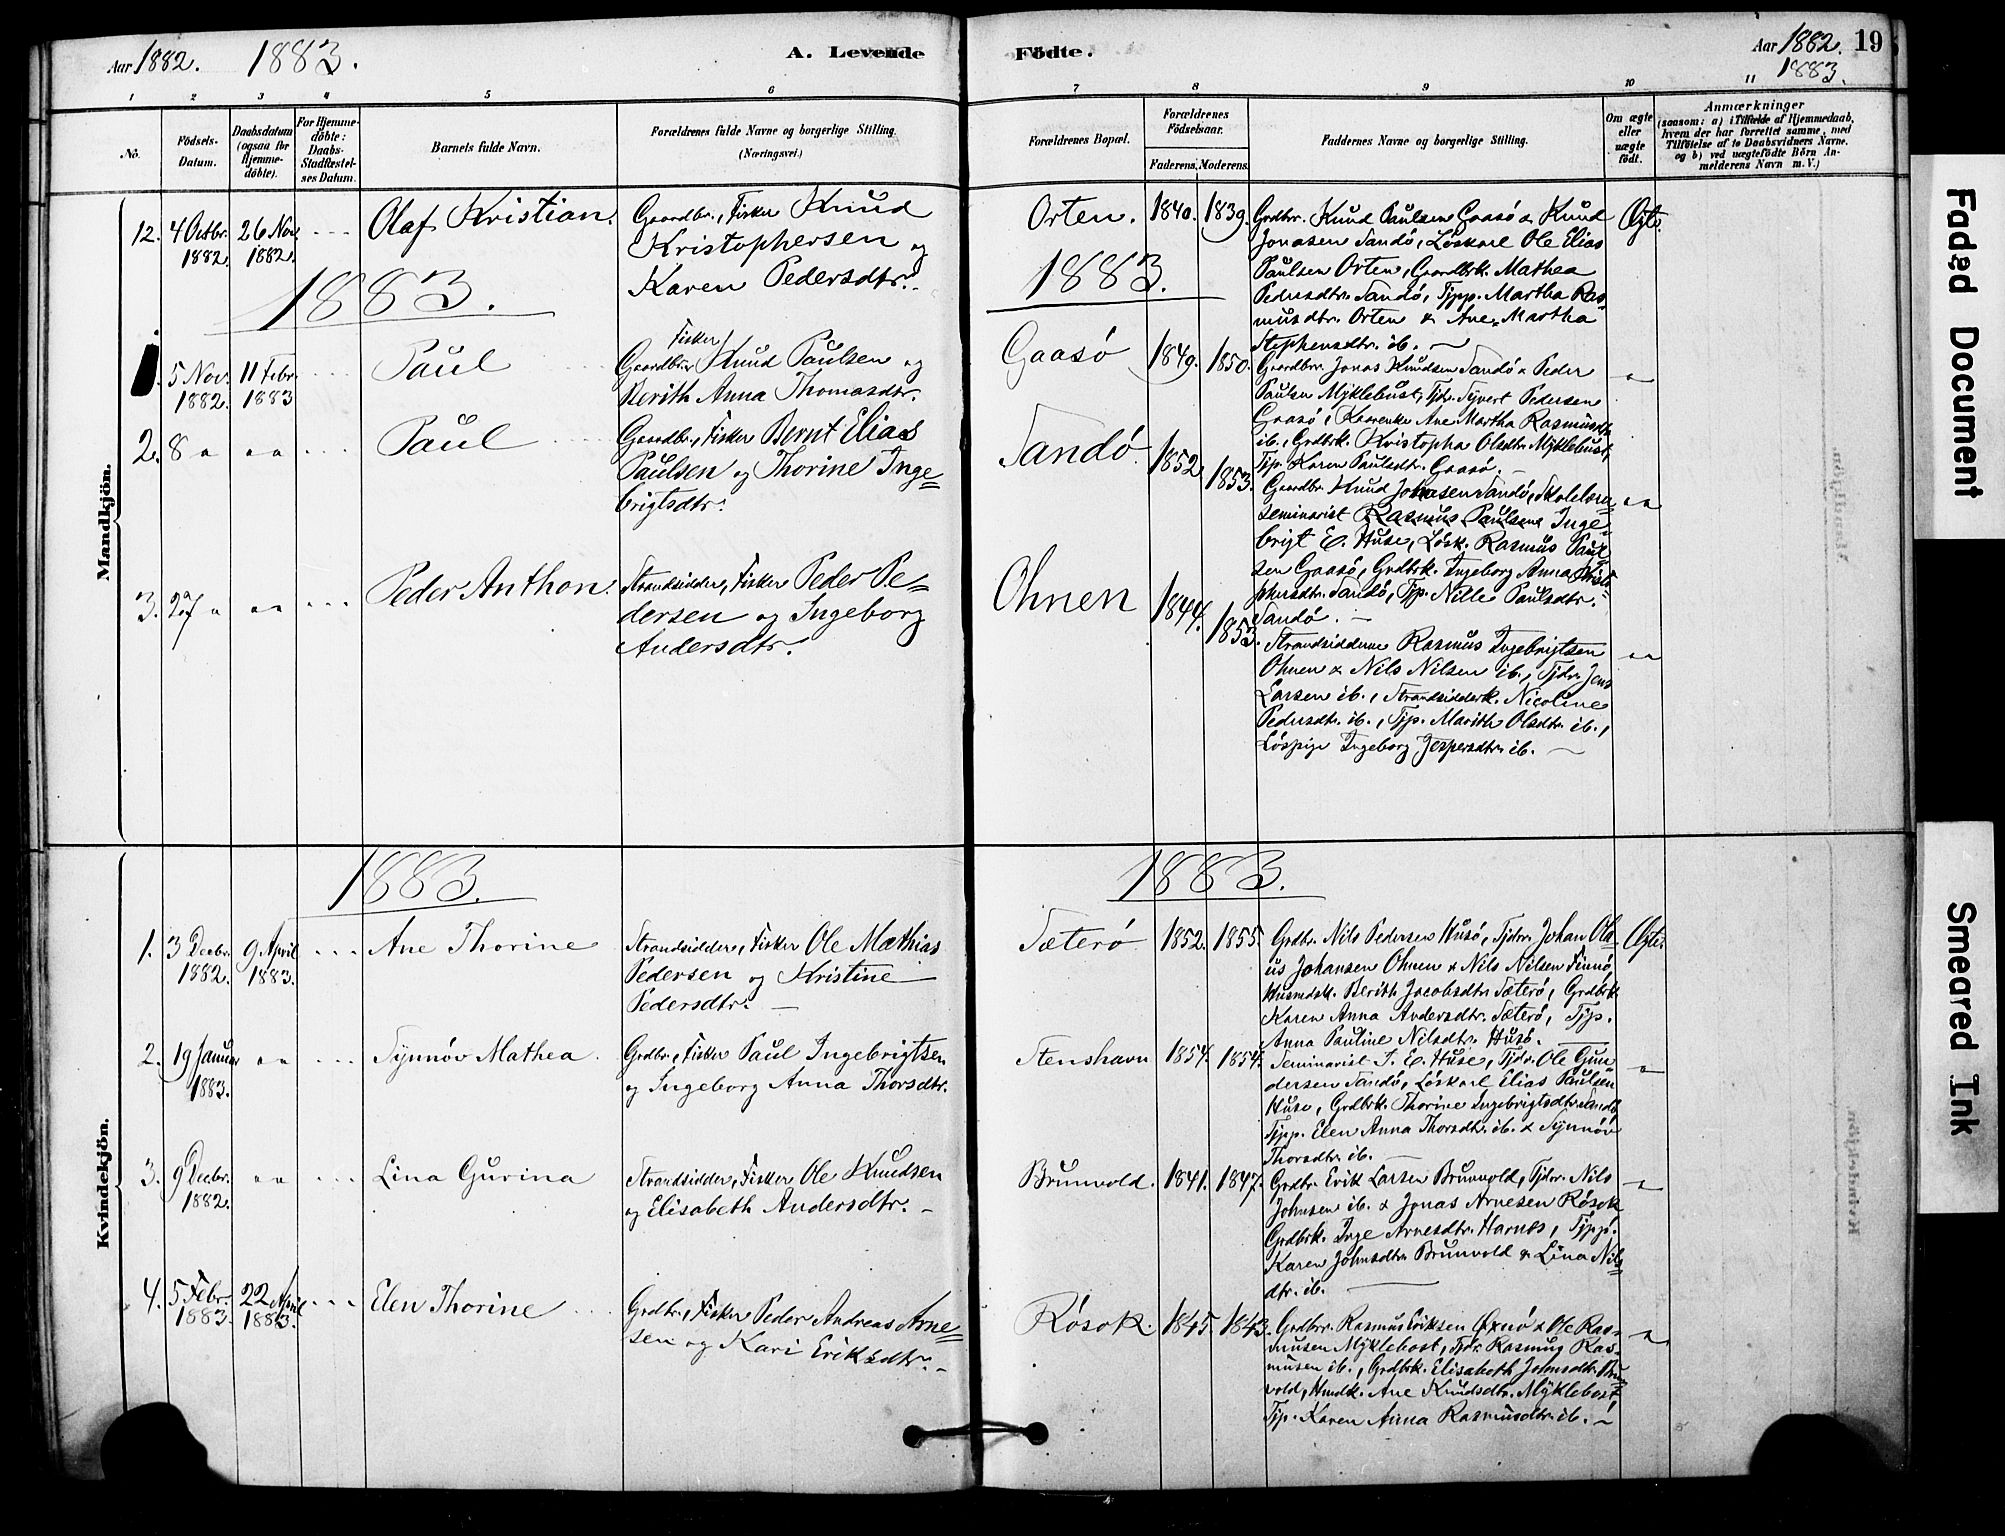 Aar 1882. 1883. A. Levende Födte. Aar 1882. 19
1883.
1 2 3 4 5 6 7 8 9 10 11
No.
Födsels-
Datum.
Daabsdatum
(ogsaa for
Hjemme-
döbte).
For Hjemme-
döbte:
Daabs-
Stadfæstel-
ses Datum.
Barnets fulde Navn.
Forældrenes fulde Navne og borgerlige Stilling.
(Næringsvei.)
Forældrenes Bopæl.
Forældrenes
Födselsaar.
Faderens. Moderens.
Faddernes Navne og borgerlige Stilling.
Om ægte
eller
uægte
födt.
Anmærkninger
(saasom: a) i Tilfælde af Hjemmedaab,
hvem der har forrettet samme, med
Tilföielse af to Daabsvidners Navne.
og b) ved uægtefödte Börn An-
melderens Navn m. V.)
Mandkjön.
12. 4 Octbr. 1882. 26 Nov. 1882. Olaf Kristian.
Gaardbr., Fisker Knud
Kristophersen og
Karen Pedersdtr.
Orten. 1840. 1839.
Grdbr. Knud Paulsen Gaasö & Knud
Jonasen Sandö, Löskarl Ole Elias
Paulsen Orten, Gaardbrk. Mathea
Pedersdtr. Sandö, Tjpp. Martha Ras-
musdtr. Orten & Ane Martha
Stephensdtr. ib. —
Ægte.
1883. 1883.
5 Nov. 1882. 11 Febr. 1883 Paul
Fisker
Gaardbr. Knud Paulsen og
Berith Anna Thomasdtr.
Gaasö 1849. 1850.
Gaardbr. Jonas Knudsen Sandö & Peder
Paulsen Myklebust, Tjdr. Syvert Pedersen
Gaasö, Ane Martha Rasmusdtr.
ib., Grdbrk. Kristopha Olsdtr. Myklebust,
Tjp. Karen Paulsdtr. Gaasö. —
2. 8 " " " Paul
Gaardbr., Fisker Bernt Elias
Paulsen og Thorine Inge=
brigtsdtr.
Sandö. 1852. 1853.
Gaardbr. Knud Johnasen Sandö,
Seminarist Rasmus Paulsen, Inge-
brigt E. Huse, Lösk. Rasmus Paul
sen Gaasö, Grdbrk. Ingeborg Anna Kristo-
phersdtr. Sandö, Tjp. Nille Paulsdtr.
Sandö. —
3. 27 " " " Peder Anthon.
Strandsidder, Fisker Peder Pe=
dersen og Ingeborg
Andersdtr.
Ohnen 1844. 1853.
Strandsidderne Rasmus Ingebrigtsen
Ohnen & Nils Nilsen ib., Tjdr. Jens
Larsen ib., Strandsidderk. Nicoline
Pedersdtr. ib., Tjp. Marith Olsdtr. ib.,
Löspige Ingeborg Jespersdtr. ib. —
Kvindekjön.
1883. 1883.
1. 3 Decbr. 1882. 9 April 1883. Ane Thorine
Strandsidder, Fisker Ole Mathias
Pedersen og Kristine
Pedersdtr. —
Sæterö 1852. 1855.
Grdbr. Nils Pedersen Husö, Tjdr. Johan Ola-
us Johansen Ohnen & Nils Nilsen Finnö,
Husmdsk. Berith Jacobsdtr. Sæterö, Grdbrk.
Karen Anna Andersdtr. Sæterö, Tjp.
Anna Pauline Nilsdtr. Husö. —
Ægte.
2. 19 Januar 1883. " " Synnöv Mathea.
Grdbr., Fisker Paul Ingebrigtsen
og Ingeborg Anna Thorsdtr.
Stenshavn 1854. 1854.
Seminarist I. E. Huse, Tjdr. Ole Gun-
dersen Sandö, Löskarl Elias Paulsen
Huse, Grdbrk. Thorine Ingebrigtsdtr. Sandö
Tjpp. Elen Anna Thorsdtr. ib. & Synnöv
Thorsdtr. ib.
3. 9 Decbr. 1882. " " Lina Gurina
Strandsidder, Fisker Ole Knudsen
og Elisabeth Andersdtr. —
Brunvold. 1841. 1847.
Grdbr. Erik Larsen Brunvold, Tjdr. Nils
Johnsen ib. & Jonas Arnesen Rösok
Grdbrk. Inge Arnesdtr. Harnes, Tjpp.
Karen Johnsdtr. Brunvold & Lina Nils
dtr. ib. —
4. 5 Febr. 1883. 22 April 1883. Elen Thorine
Grdbr., Fisker Peder Andreas Arne=
sen og Kari Eriksdtr. —
Rösok. 1845. 1843.
Grdbrr. Rasmus Eriksen Oxnö & Ole Ras-
musen Myklebost, Tjdr. Rasmus Ras-
musen ib., Grdbrk. Elisabeth Johnsdtr. Brun
vold, Husmdk. Ane Knudsdtr. Myklebost
Tjp. Karen Anna Rasmusdtr. ib. —
Faded Document
Smeared Ink